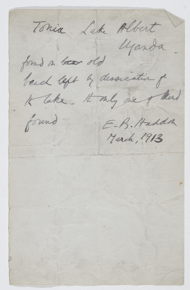 Tonia Lake Albert
Uganda
found on old
beach left by desiccation of
the lake. the only one of
found
E. B. Haddon
March, 1913